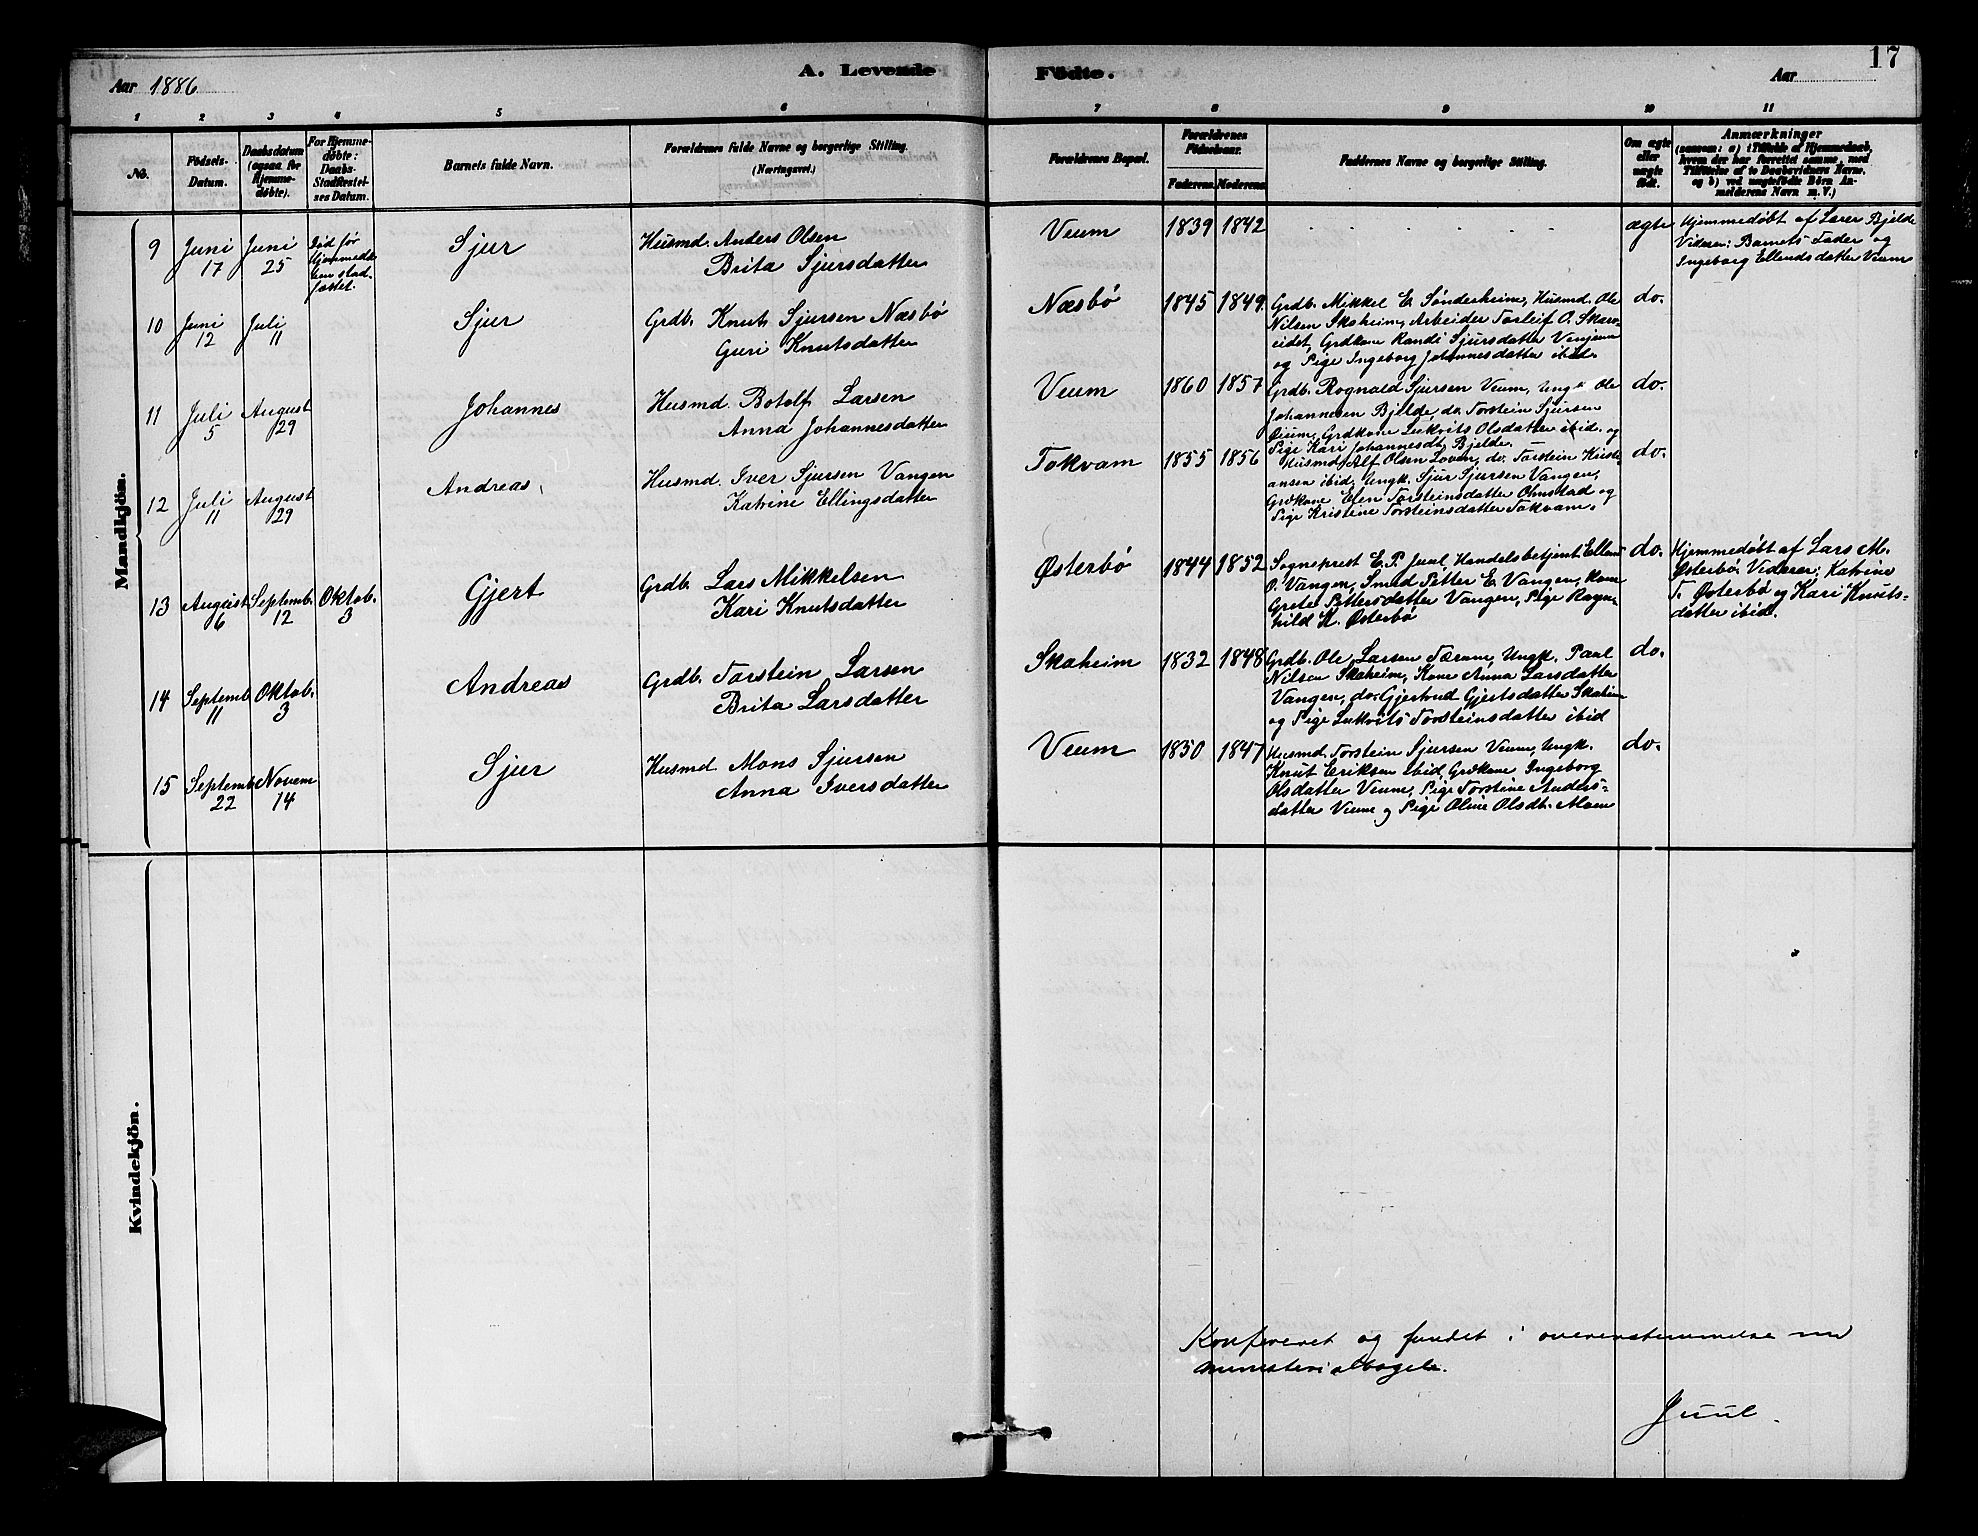 17
Aar 1886
A. Levende Födte.
Aar
1 2 3 4 5 6 7 8 9 10 11
No.
Födsels-Datum.
Daabsdatum (ogsaa for Hjemme-døbte).
For Hjemme-døbte: Daabs-Stadfæstel-ses Datum.
Barnets fulde Navn.
Forældrenes fulde Navne og borgerlige Stilling. (Næringsvei.)
Forældrenes Bopæl.
Forældrenes Födselsaar.
Faderens. Moderens.
Faddernes Navne og borgerlige Stilling.
Om ægte eller uægte födt.
Anmærkninger
(saasom: a) i Tilfælde af Hjemmedaab,
hvem der har forrettet samme, med
Tilföielse af to Daabsvidners Navne,
og b) ved uægtefödte Börn An-
melderens Navn m. V.)
Mandkjön.
9 Juni 17 Juni 25 Død før Hjemmedaaben stadfæstet. Sjur
Husmd. Anders Olsen
Brita Sjursdatter
Veum 1839 1842 ægte
Hjemmedøbt af Lærer Bjelde
Vidner: Barnets Fader og
Ingeborg Ellendsdatter Veum
10 Juni 12 Juli 11 Sjur
Grdb. Knut Sjursen Næsbö
Guri Knutsdatter
Næsbö 1845 1849
Grdb. Mikkel E. Sønderheim, Husmd. Ole
Nilsen Skaheim, Arbeider Torleif O. Skær-
eidet, Grdkone Randi Sjursdatter Vinjum
og Pige Ingeborg Johannesdatter ibid.
do.
11 Juli 5 August 29 Johannes
Husmd. Botolf Larsen
Anna Johannesdatter
Veum 1860 1857
Grdb. Rognald Sjursen Veum, Ungk. Ole
Johannesen Bjelde, do. Torstein Sjursen
Veum, Grdkone Lukrits Olsdatter ibid. og
Pige Kari Johannesdt. Bjelde.
do.
12 Juli 11 August 29 Andreas
Husmd. Iver Sjursen Vangen
Katrine Ellingsdatter
Tokvam 1855 1856
Husmd. Alf Olsen Loven, do. Torstein Kristi-
ansen ibid, Ungk. Sjur Sjursen Vangen,
Grdkone Elen Torsteinsdatter Ohnstad og
Pige Kristine Torsteinsdatter Tokvam.
do.
13 August 6 Septemb. 12 Oktob. 3 Gjert
Grdb. Lars Mikkelsen
Kari Knutsdatter
Østerbö 1844 1852
Sogneprest E. P. Juul, Handelsbetjent Ellend
O. Vangen, Smed Petter E. Vangen, Kone
Gretel Pettersdatter Vangen, Pige Ragn-
hild K. Østerbö
do.
Hjemmedøbt af Lars M.
Østerbö. Vidner: Katrine
T. Østerbö og Kari Knuts-
datter ibid.
14 Septemb. 11 Oktob. 3 Andreas
Grdb. Torstein Larsen
Brita Larsdatter
Skaheim 1832 1848
Grdb. Ole Larsen Tærum, Ungk. Paul
Nilsen Skaheim, Kone Anna Larsdatter
Vangen, do. Gjertrud Gjertsdatter Skaheim
og Pige Lukrits Torsteinsdatter ibid
do.
15 Septemb. 22 Novem 14 Sjur
Husmd. Mons Sjursen
Anna Iversdatter
Veum 1850 1847
Husmd. Torstein Sjursen Veum, Ungk.
Knut Eriksen ibid, Grdkone Ingeborg
Olsdatter Veum, Pige Torstine Anders-
datter Veum og Pige Oline Olsdt. Moen
do.
Kvindekjön.
Konfereret og fundet i overensstemmelse med
ministerialbogen.
Juul.